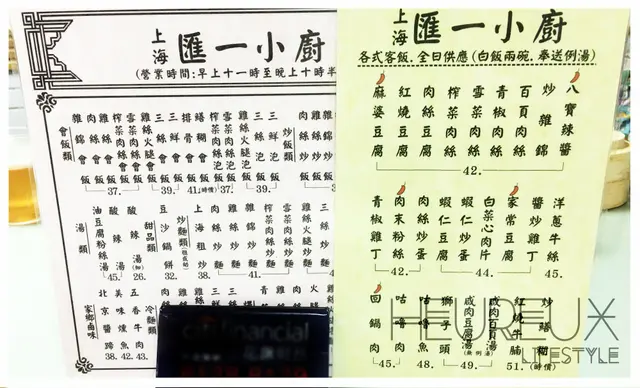 上海 匯一小廚
(營業時間:早上十一時至晚上十時半
會飯類
雜錦會飯
肉絲會飯
榨菜肉絲會飯
雪菜肉絲會飯
雞絲火腿會飯
37.
三絲會飯
三鮮會飯
39.
排骨會飯
41.
鱔糊會飯
(時價)
榨菜肉絲泡飯
雪菜肉絲泡飯
37.
雞絲火腿泡飯
三絲泡飯
三鮮泡飯
39.
炒飯類
肉絲炒飯
雞絲炒飯
湯類
油豆腐粉絲湯
45.
酸辣湯
酸辣湯(細)
26.
甜品類
豆沙鍋餅
32.
炒麵類
上海粗炒
38.
肉絲炒麵
雞絲炒麵
雜錦炒麵
榨菜肉絲炒麵
41.
家鄉滷味
北京醬蹄
38.
美味燻魚
42.
五香牛肉
43.
冷麵類
上海 匯一小廚
各式客飯.全日供應(白飯兩碗.奉送例湯)
麻婆豆腐
紅燒豆腐
肉絲豆腐
榨菜肉絲
雪菜肉絲
青椒肉絲
百頁肉絲
炒雜錦
八寶辣醬
42.
青椒雞丁
肉末粉絲
肉絲炒蛋
42.
蝦仁炒蛋
蝦仁豆腐
白菜心肉片
家常豆腐
醬炒雞丁
44.
洋蔥牛絲
45.
回鍋肉
咕嚕肉
45.
咕嚕魚
48.
獅子頭
咸肉豆腐湯
(無例湯)
咸肉百頁湯
49.
紅燒牛腩
51.
炒鱔糊
(時價)
HEUREUX
LIFESTYLE